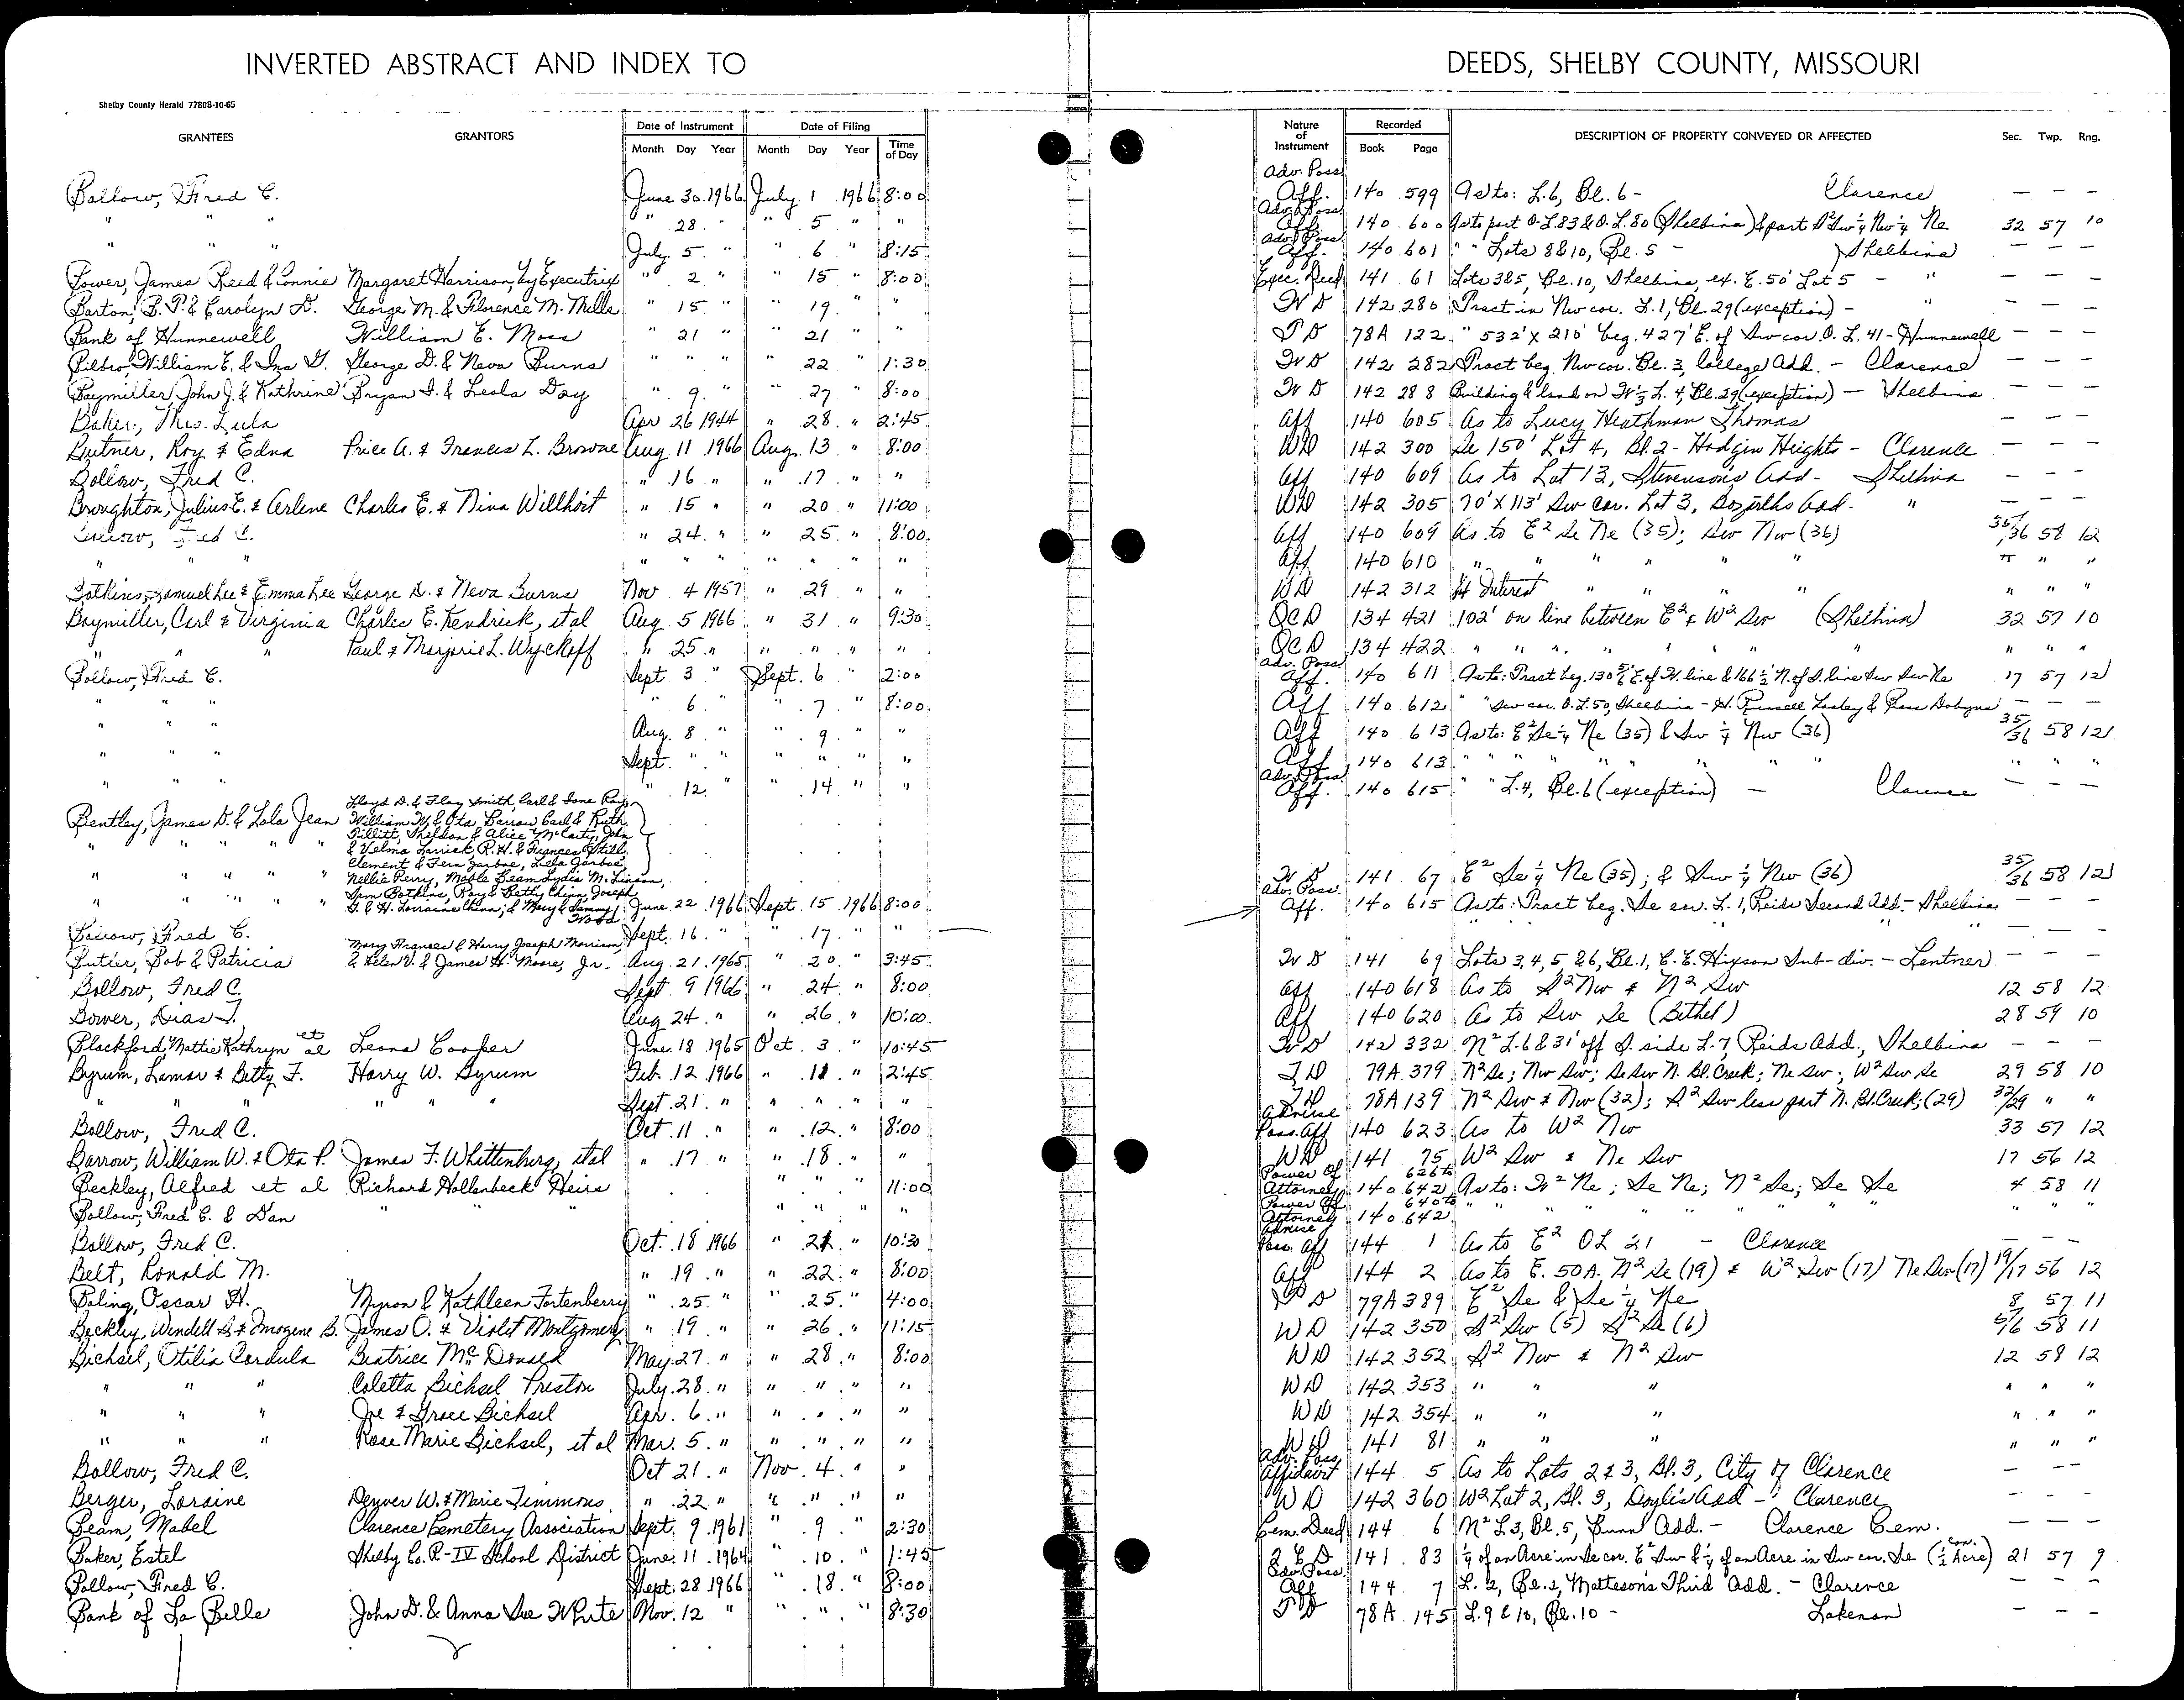 INVERTED ABSTRACT AND INDEX TO DEEDS, SHELBY COUNTY, MISSOURI
Shelby County Herald 7780B-10-65
GRANTEES GRANTORS Date of Instrument Date of Filing Nature of Instrument Recorded DESCRIPTION OF PROPERTY CONVEYED OR AFFECTED Sec. Twp. Rng.
Month Day Year Month Day Year Time of Day Book Page
Bollow, Fred C. June 30 1966 July 1 1966 8:00 Adv. Poss. Aff. 140 599 As to: L.6, Bl. 6 - Clarence — — —
" " " " 28 " " 5 " " Adv. Poss. Aff. 140 600 As to part O.L. 83 & O.L. 80 (Shelbina) & part S² Sw ¼ Nw ¼ Ne 32 57 10
" " " July 5 " " 6 " 8:15 Adv. Poss. Aff. 140 601 " " Lots 8 & 10, Bl. 5 - Shelbina — — —
Power, James Reed & Connie Margaret Harrison, by Executrix " 2 " " 15 " 8:00 Exec. Deed 141 61 Lots 3 & 5, Bl. 10, Shelbina, ex. E. 50' Lot 5 - " — — —
Barton, B. P. & Carolyn D. George M. & Florence M. Mills " 15 " " 19 " " W D 142 280 Tract in Nw cor. L. 1, Bl. 29 (exception) - " — — —
Bank of Hunnewell William E. Moss " 21 " " 21 " " T D 78A 122 " 532' X 210' beg. 427' E. of Sw cor. O. L. 41 - Hunnewell — — —
William E. & Ina G. George D. & Neva Burns " " " " 22 " 1:30 W D 142 282 Tract beg. Nw cor. Bl. 3, College Add. - Clarence — — —
Baymiller, John J. & Kathrine Bryan I. & Leola Day " 9 " " 27 " 8:00 W D 142 288 Building & land on W ⅓ L. 4, Bl. 29 (exception) - Shelbina — — —
Baker, Mrs. Lula Apr 26 1944 " 28 " 2:45 Aff 140 605 As to Lucy Heathman Thomas — — —
Buitner, Roy & Edna Price A. & Frances L. Browne Aug. 11 1966 Aug. 13 " 8:00 WD 142 300 Se 150' Lot 4, Bl. 2 - Hodgin Heights - Clarence — — —
Bollow, Fred C. " 16 " " 17 " " Aff 140 609 As to Lot 13, Stevenson's Add - Shelbina — — —
Broughton, Julius E. & Arlene Charles E. & Nina Willhoit " 15 " " 20 " 11:00 WD 142 305 70' X 113' Sw cor. Lot 3, Bozarths Add. " — — —
Bollow, Fred C. " 24 " " 25 " 8:00 Aff 140 609 As to E² Se Ne (35); Sw Nw (36) 35/36 58 12
" " " " " " " Aff 140 610 " " " " " " " "
Botkins, Samuel Lee & Emma Lee George D. & Neva Burns Nov 4 1957 " 29 " " WD 142 312 Interest " " " " " "
Baymiller, Carl & Virginia Charles E. Kendrick, et al Aug. 5 1966 " 31 " 9:30 QCD 134 421 102' on line between E² & W² Sw (Shelbina) 32 57 10
" " " Paul & Marjorie L. Wyckoff " 25 " " " " " QCD 134 422 " " " " " " " " "
Bollow, Fred C. Sept. 3 " Sept. 6 " 2:00 Adv. Poss. Aff. 140 611 As to: Tract beg. 130 5/6' E. of W. line & 166 ½' N. of S. line Sw Sw Ne 17 57 12
" " " " 6 " " 7 " 8:00 Aff 140 612 " " Sw cor. O. L. 50, Shelbina - H. Russell Lasley & Rosa Dobyns — — —
" " " Aug. 8 " " 9 " " Aff 140 613 As to: E² Se ¼ Ne (35) & Sw ¼ Nw (36) 35/36 58 12
" " " Sept. " " " " " " Aff 140 613 " " " " " " " " " "
" " " " 12 " " 14 " " Adv. Poss. Aff. 140 615 " " L. 4, Bl. 6 (exception) - Clarence — — —
Lloyd D. & Floy Smith, Carl & Ione Ray,
Bentley, James D. & Lola Jean William W. & Ota Barrow Carl & Ruth
Pillitt, Sheldon & Alice McCarty, John
" " " " " & Velma Larrick, R. H. & Frances Still
Clement & Fern Garbae, Lela Garbae,
" " " " " Nellie Perry, Mable Beam, Lydia M. W D 141 67 E² Se ¼ Ne (35); & Sw ¼ Nw (36) 35/36 58 12
Sam Botkins, Roy & Betty Chinn, Joseph
" " " " " G. & H. Lorraine Chinn; & Mary & Sammy Wood June 22 1966 Sept. 15 1966 8:00 Adv. Poss. Aff. 140 615 As to: Tract beg. Se cor. L. 1, Reids Second Add. - Shelbina — — —
Bollow, Fred C. Sept. 16 " " 17 " " " " — — —
Mary Frances & Harry Joseph Morrison,
Butler, Bob & Patricia & Helen V. & James H. Moore, Jr. Aug. 21 1965 " 20 " 3:45 W D 141 69 Lots 3, 4, 5 & 6, Bl. 1, C. E. Hixson Sub-div. - Lentner — — —
Bollow, Fred C. Sept 9 1966 " 24 " 8:00 Aff 140 618 As to S² Nw & N² Sw 12 58 12
Bower, Dias T. Aug 24 " " 26 " 10:00 Aff 140 620 As to Sw Se (Bethel) 28 59 10
Blackford, Mattie Kathryn et al Leona Cooper June 18 1965 Oct. 3 " 10:45 W D 142 332 N² L. 6 & 31' off S. side L. 7, Reids Add., Shelbina — — —
Byrum, Lamar & Betty F. Harry W. Byrum Feb. 12 1966 " 11 " 2:45 T D 79A 379 N² Se; Nw Sw; Se Sw N. Bl. Creek; Ne Sw; W² Sw Se 29 58 10
" " " " " " Sept. 21 " " " " " T D 78A 139 N² Sw & Nw (32); S² Sw less part N. Bl. Creek; (29) 32/29 " "
Bollow, Fred C. Oct. 11 " " 12 " 8:00 Adverse Poss. Aff 140 623 As to W² Nw 33 57 12
Barrow, William W. & Ota P. James F. Whittenberg, et al " 17 " " 18 " " WD 141 75 W² Sw & Ne Sw 17 56 12
Beckley, Alfred et al Richard Hollenbeck Heirs " " " 11:00 Power Of Attorney 140 626 to 642 As to: W² Ne; Se Ne; N² Se; Se Se 4 58 11
Bollow, Fred C. & Dan " " " " " " Power Of Attorney 140 640 to 642 " " " " " " " " " "
Bollow, Fred C. Oct. 18 1966 " 21 " 10:30 Adverse Poss. Aff 144 1 As to E² OL 21 - Clarence — — —
Belt, Ronald M. " 19 " " 22 " 8:00 Aff 144 2 As to E. 50A. N² Se (19) & W² Sw (17) Ne Sw (17) 19/17 56 12
Baling, Oscar H. Myron & Kathleen Fortenberry " 25 " " 25 " 4:00 D 79A 389 E² Se & Se ¼ Ne 8 57 11
Beckley, Wendell & Imogene B. James O. & Violet Montgomery " 19 " " 26 " 11:15 WD 142 350 S² Sw (5) S² Se (6) 5/6 58 11
Bichsel, Otilia Cordula Beatrice McDonald May 27 " " 28 " 8:00 WD 142 352 S² Nw & N² Sw 12 58 12
" " " Coletta Bichsel Preston July 28 " " " " " WD 142 353 " " " " " "
" " " Joe & Grace Bichsel Apr. 6 " " " " " WD 142 354 " " " " " "
" " " Rose Marie Bichsel, et al Mar. 5 " " " " " WD 141 81 " " " " " "
Bollow, Fred C. Oct 21 " Nov. 4 " " Adv. Poss. Affidavit 144 5 As to Lots 2 & 3, Bl. 3, City of Clarence — — —
Berger, Loraine Denver W. & Marie Timmons " 22 " " " " " WD 142 360 W² Lot 2, Bl. 3, Doyle's Add - Clarence — — —
Beam, Mabel Clarence Cemetery Association Sept. 9 1961 " 9 " 2:30 Cem. Deed 144 6 N² L 3, Bl. 5, Bunn Add. - Clarence Cem. — — —
Baker, Estel Shelby Co. R-IV School District June 11 1964 " 10 " 1:45 Q C D 141 83 ¼ of an Acre in Se cor. E² Sw & ¼ of an Acre in Sw cor. Se (½ Acre) con. 21 57 9
Bollow, Fred C. Sept. 28 1966 " 18 " 8:00 Adv. Poss. Aff 144 7 L. 2, Bl. 2, Matteson's Third Add. - Clarence — — —
Bank of La Belle John D. & Anna Sue White Nov. 12 " " " " 8:30 T D 78A 145 L. 9 & 10, Bl. 10 - Lakenan — — —